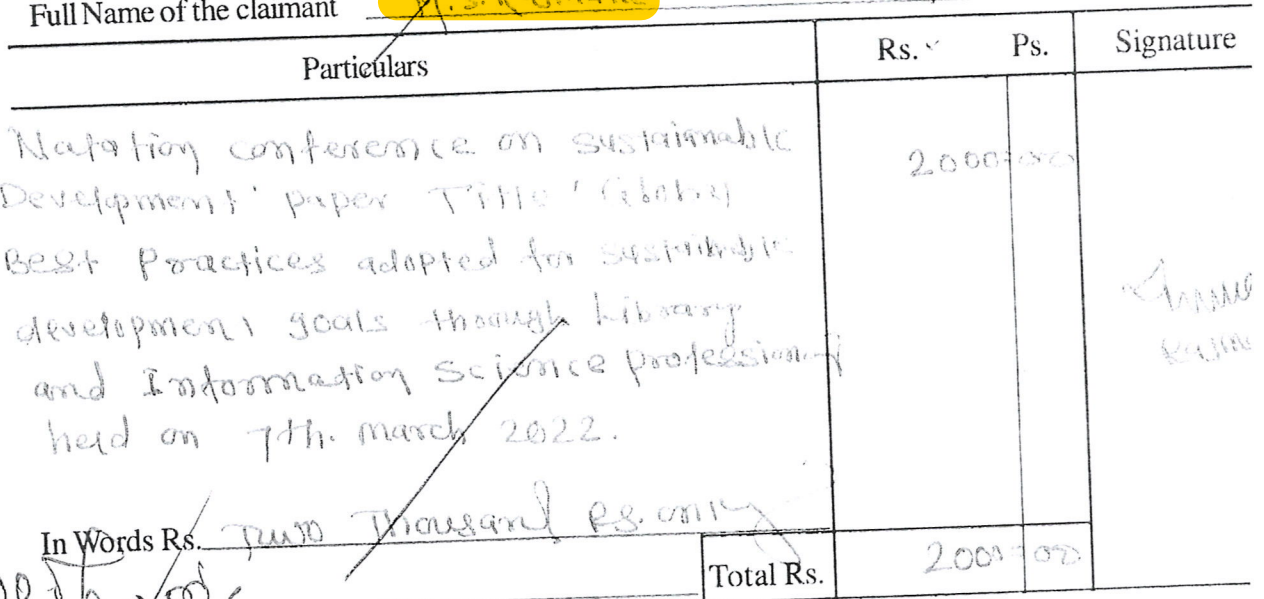 Full Name of the claimant
Particulars Rs. Ps. Signature
Natation conference on sustainable 2000
Development' paper Title '
Best Practices adopted for
development goals through Library
and Information Science professional
held on 7th. march 2022.
In Words Rs. Two Thousand Rs. only
Total Rs. 2000 00